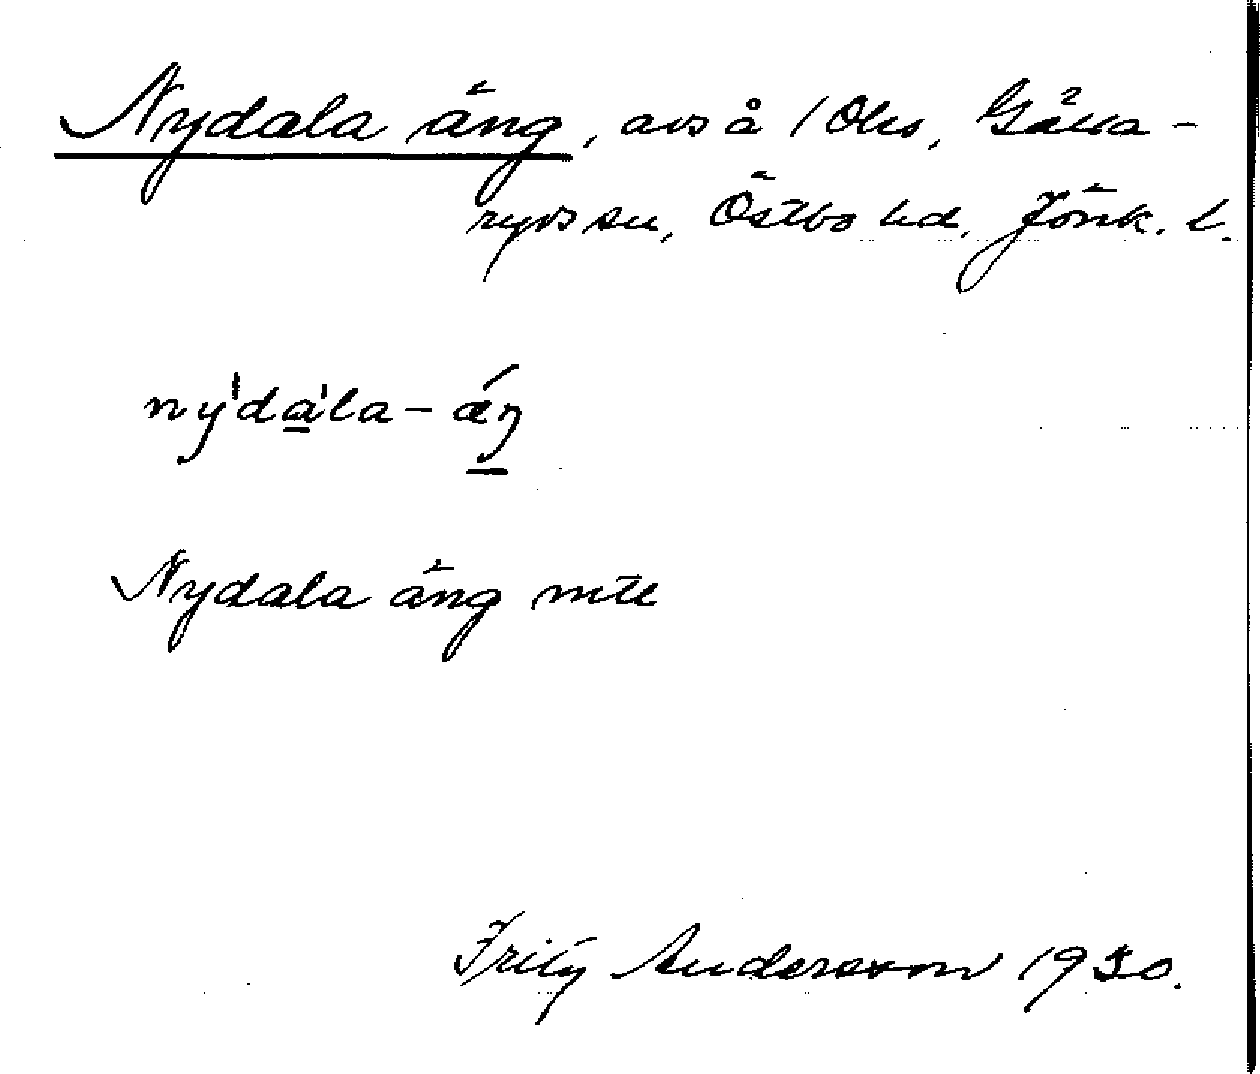 Nydala äng, avs å 1 Ohs, Gälla-
ryds sn, Östbo hd, Jönk. l.
ny'da'la-äŋ
Nydala äng mtl
Fritz Andersson 1930.